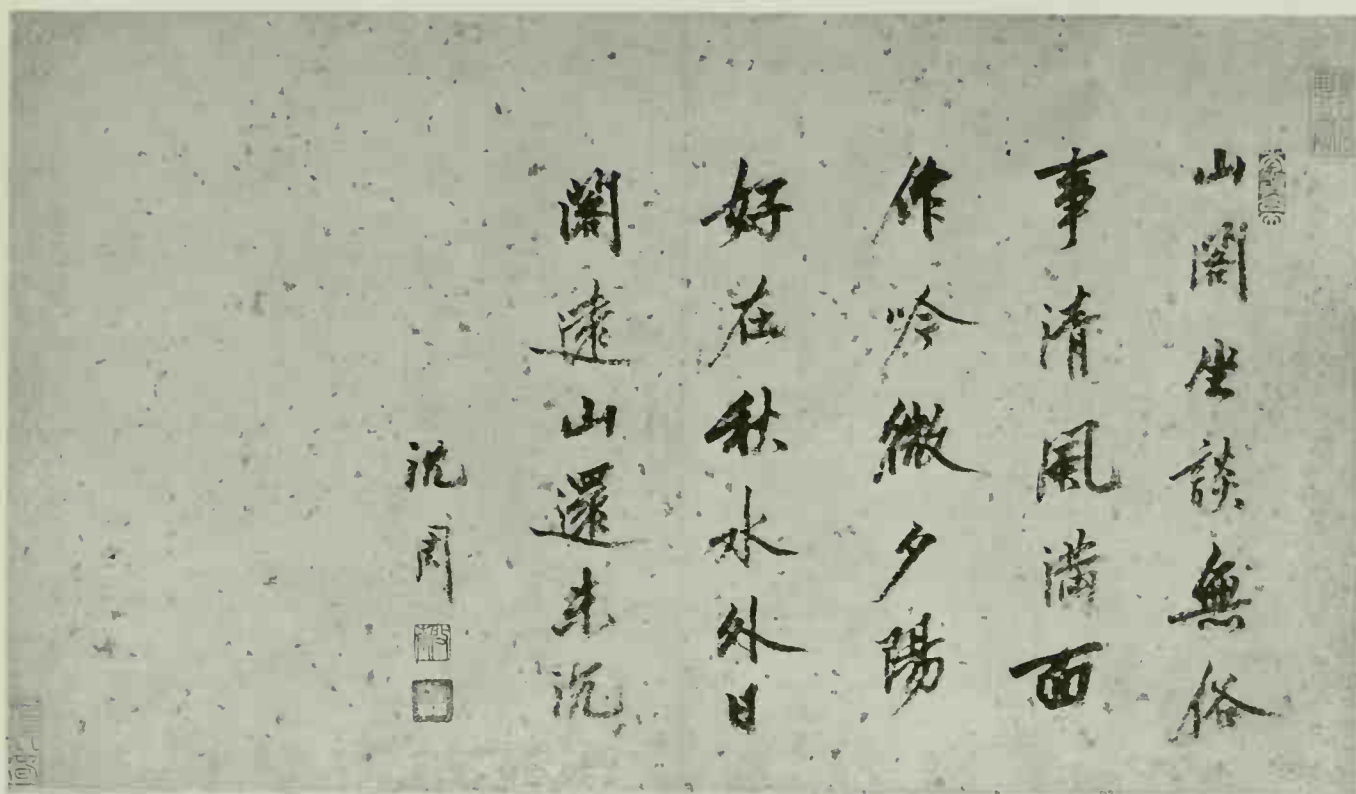 山閣坐談無俗
事清風滿面
作吟微夕陽
好在秋水外日
闌遠山還未沉
沈周